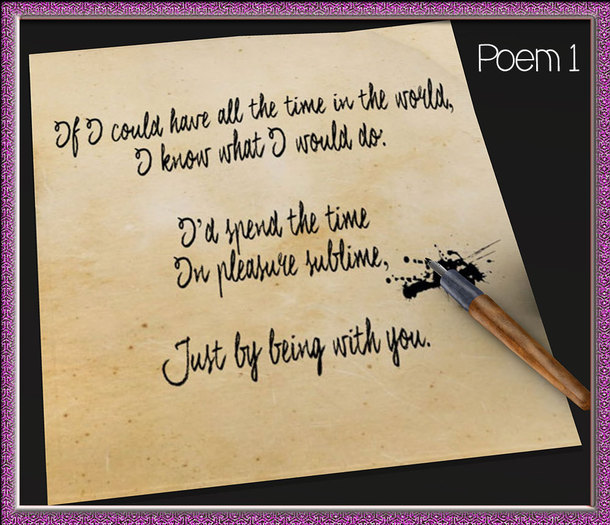 Poem 1
If I could have all the time in the world,
I know what I would do.
I'd spend the time
In pleasure sublime,
Just by being with you.